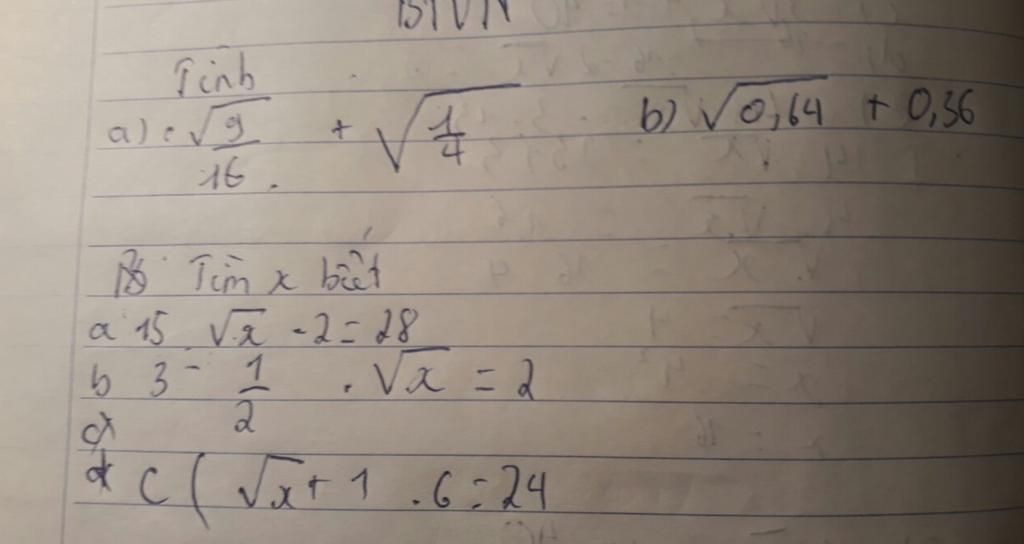 BTVN
Tính
a) : √9/16 + √1/4 b) √0,64 + 0,36
Tìm x biết
a 15 √x - 2 = 28
b 3 - 1/2 . √x = 2
c (√x + 1 . 6 = 24